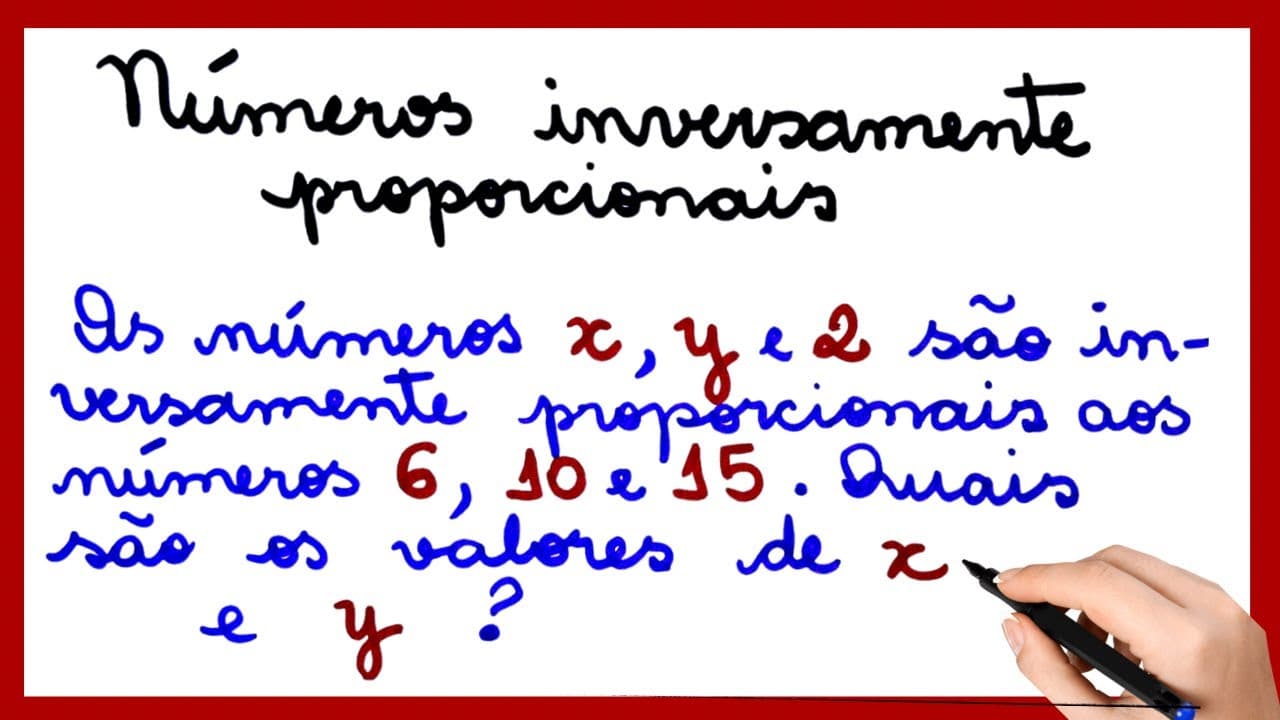 Números inversamente
proporcionais
Os números x, y e 2 são in-
versamente proporcionais aos
números 6, 10 e 15. Quais
são os valores de x
e y ?